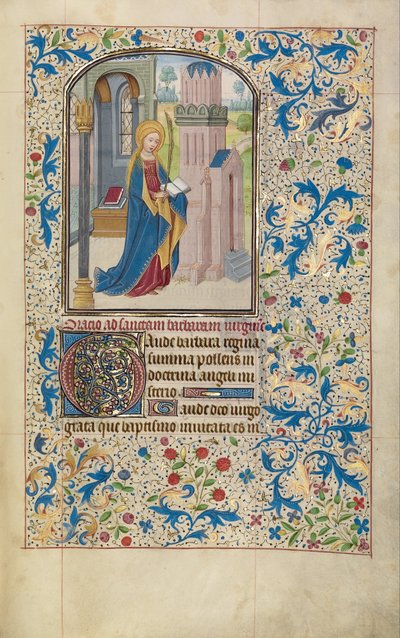 Oratio ad sanctam barbaram virginē
Gaude barbara regina
summa pollens in
doctrina angeli mi
sterio. Gaude deo virgo
grata que baptismo imitata es in